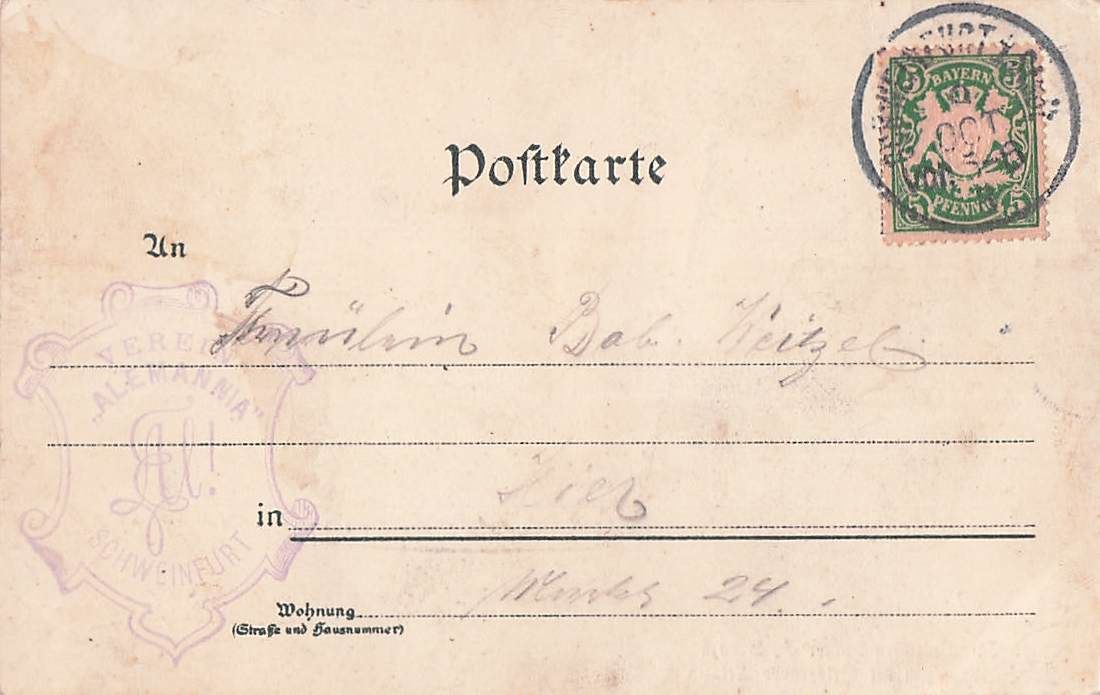 Postkarte
5 BAYERN 5
5 PFENNIG 5
OCT
An
Fräulein Bab. Weitzel
VEREIN
„ALEMANNIA"
Al!
SCHWEINFURT
in Hier
Wohnung 24.
(Straße und Hausnummer)